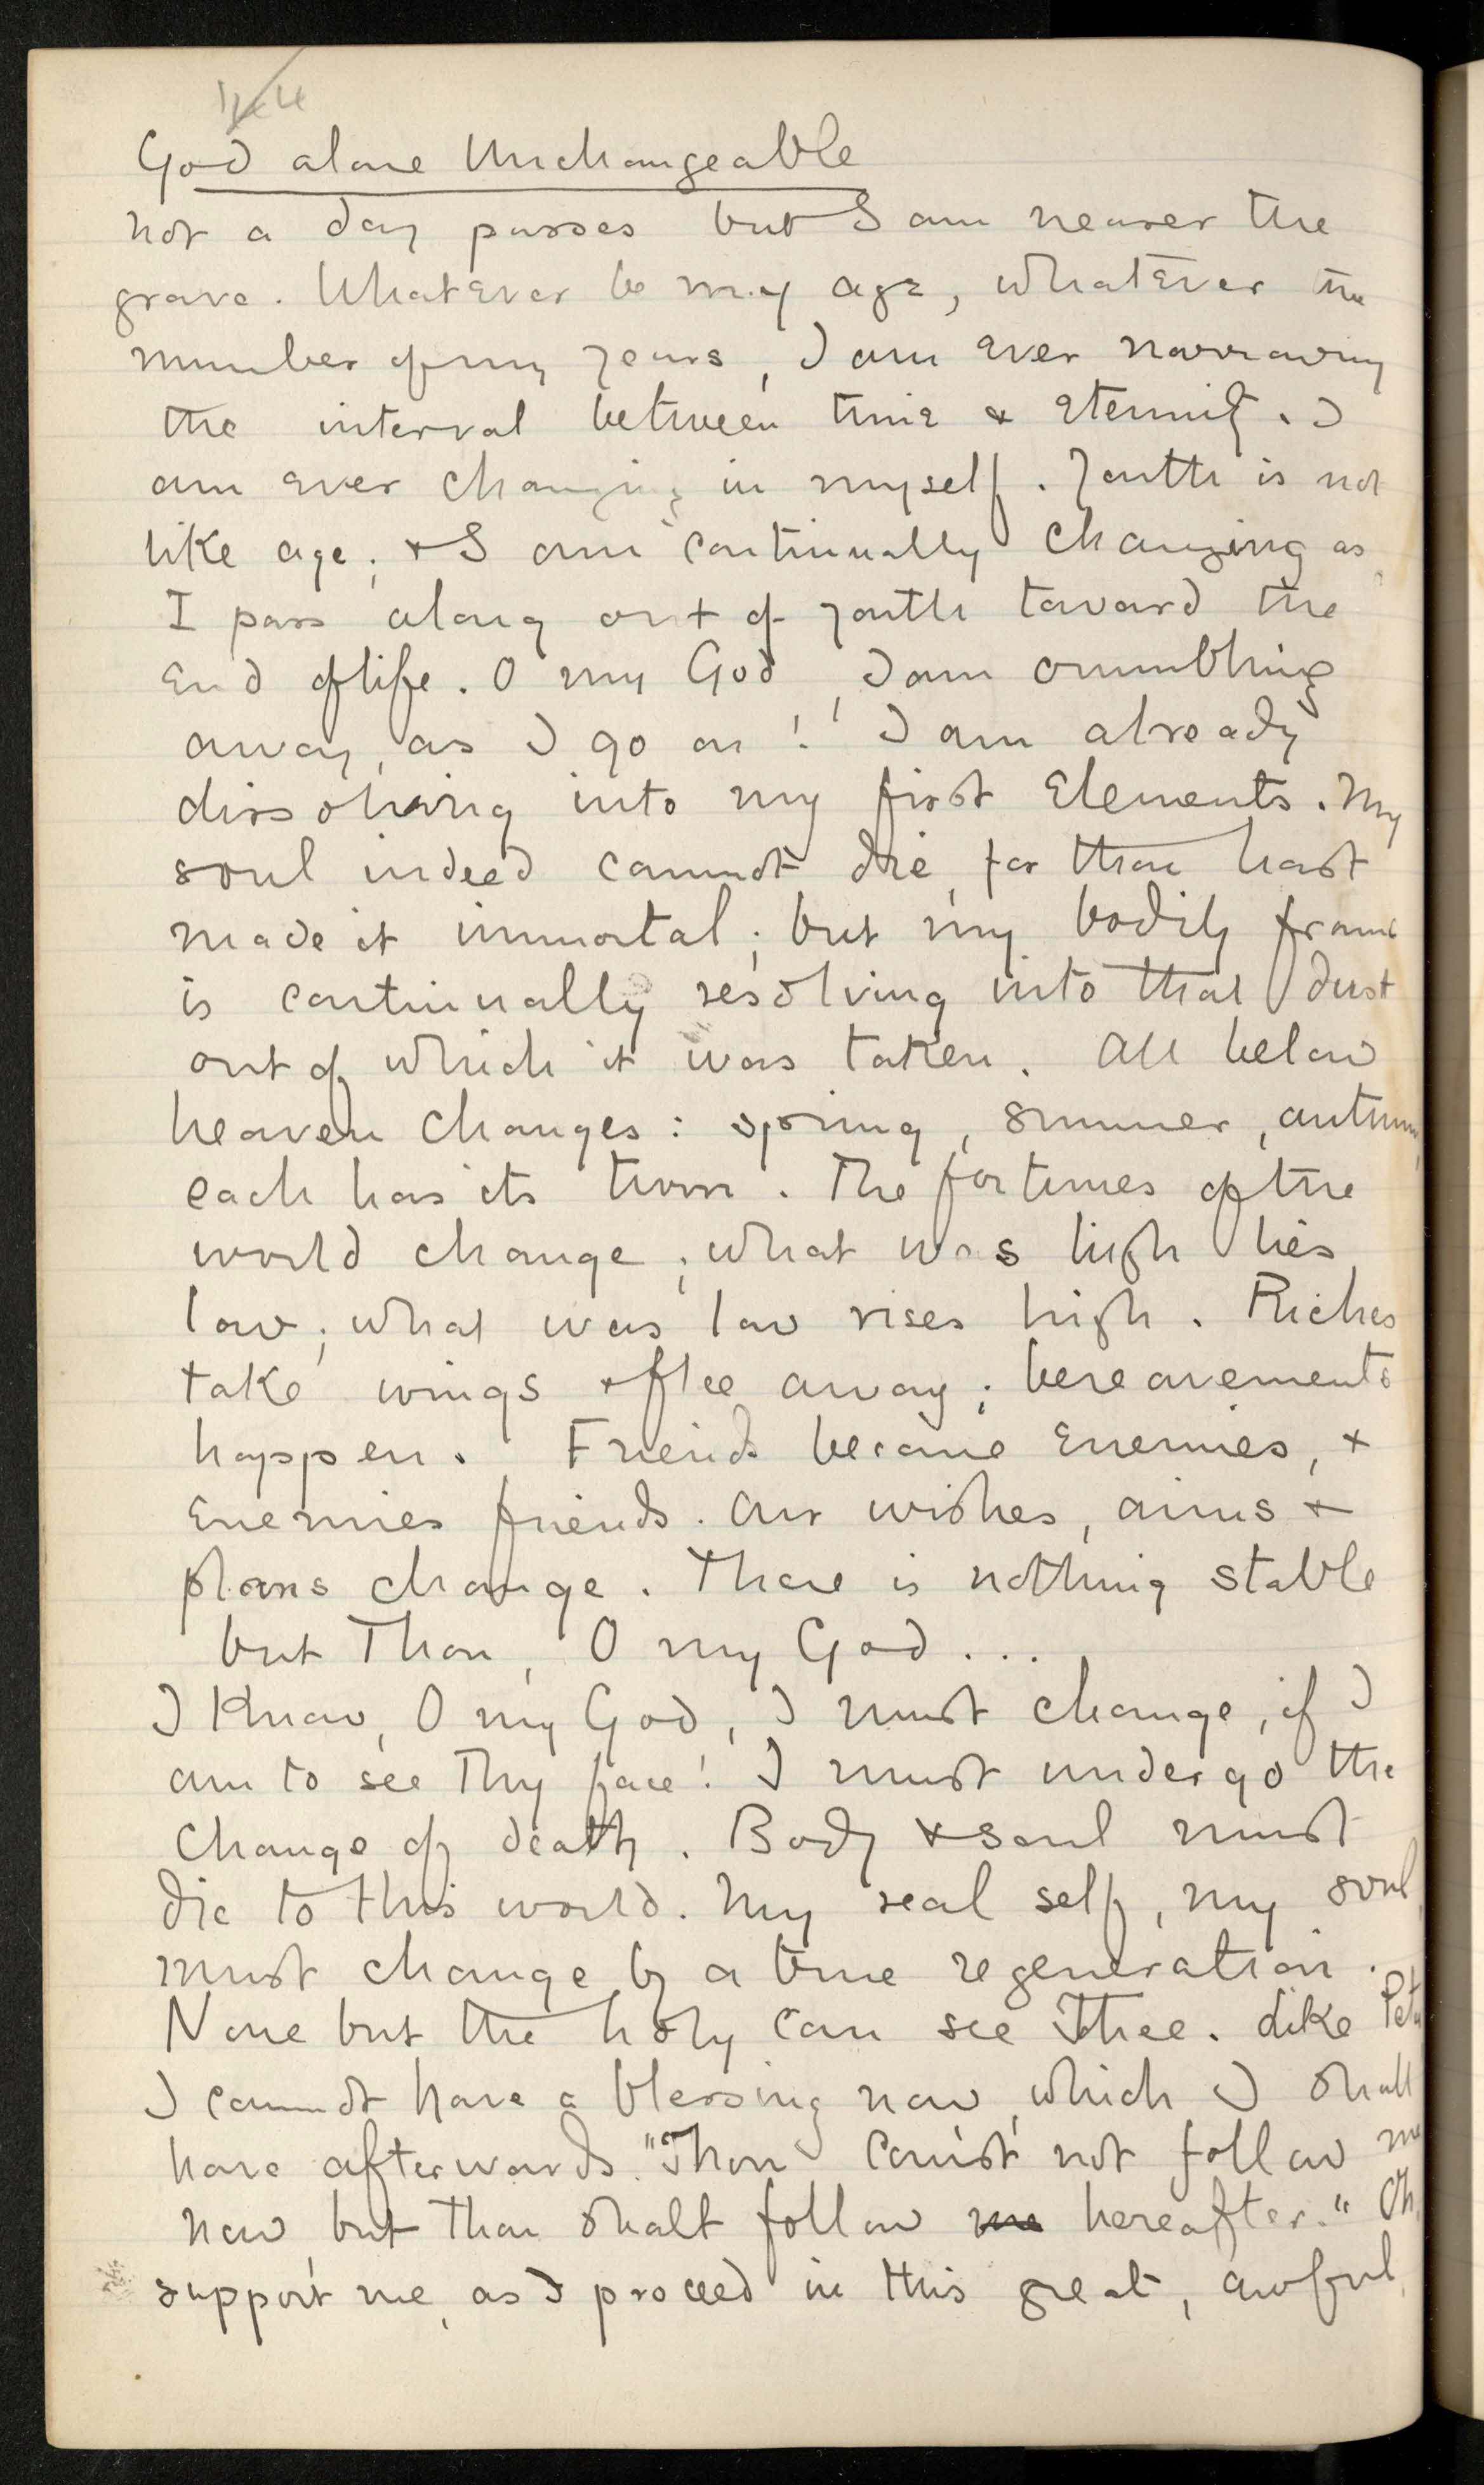 God alone Unchangeable
not a day passes but I am nearer the
grave. Whatever be my age, whatever the
number of my years, I am ever narrowing
the interval between time & eternity. I
am ever changing in myself. Youth is not
like age; & I am continually changing as
I pass along out of youth toward the
end of life. O my God, I am crumbling
away, as I go on! I am already
dissolving into my first elements. My
soul indeed cannot die, for thou hast
made it immortal; but my bodily frame
is continually resolving into that dust
out of which it was taken. All below
heaven changes: spring, summer, autumn,
each has its turn. The fortunes of the
world change; what was high lies
low; what was low rises high. Riches
take wings & flee away; bereavements
happen. Friends become enemies, &
enemies friends. Our wishes, aims &
plans change. There is nothing stable
but Thou, O my God...
I know, O my God, I must change, if I
am to see Thy face! I must undergo the
change of death. Body & soul must
die to this world. My real self, my soul,
must change by a true regeneration.
None but the holy can see Thee. Like Peter
I cannot have a blessing now, which I shall
have afterwards. "Thou canst not follow me
now, but thou shalt follow me hereafter." Oh,
support me, as I proceed in this great, awful,